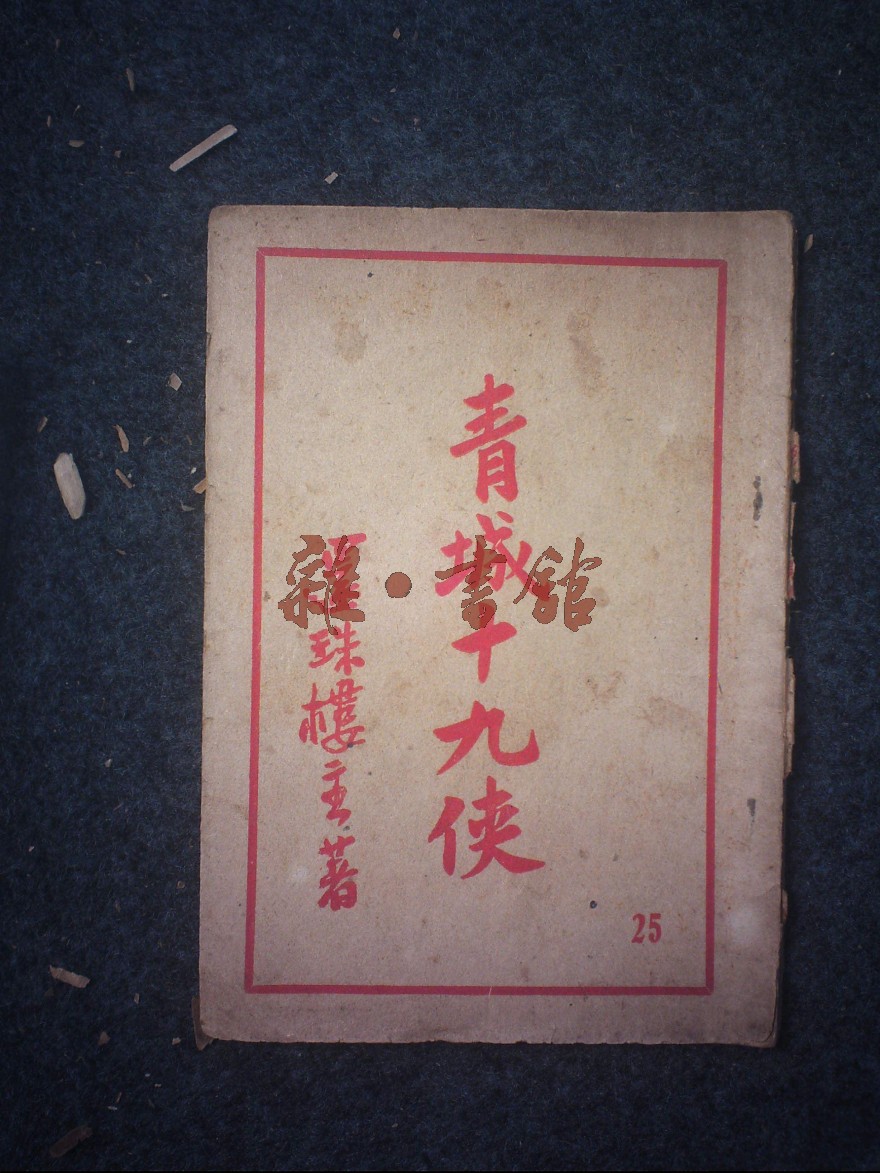 青城十九俠
還珠樓主著
25
雜·書館